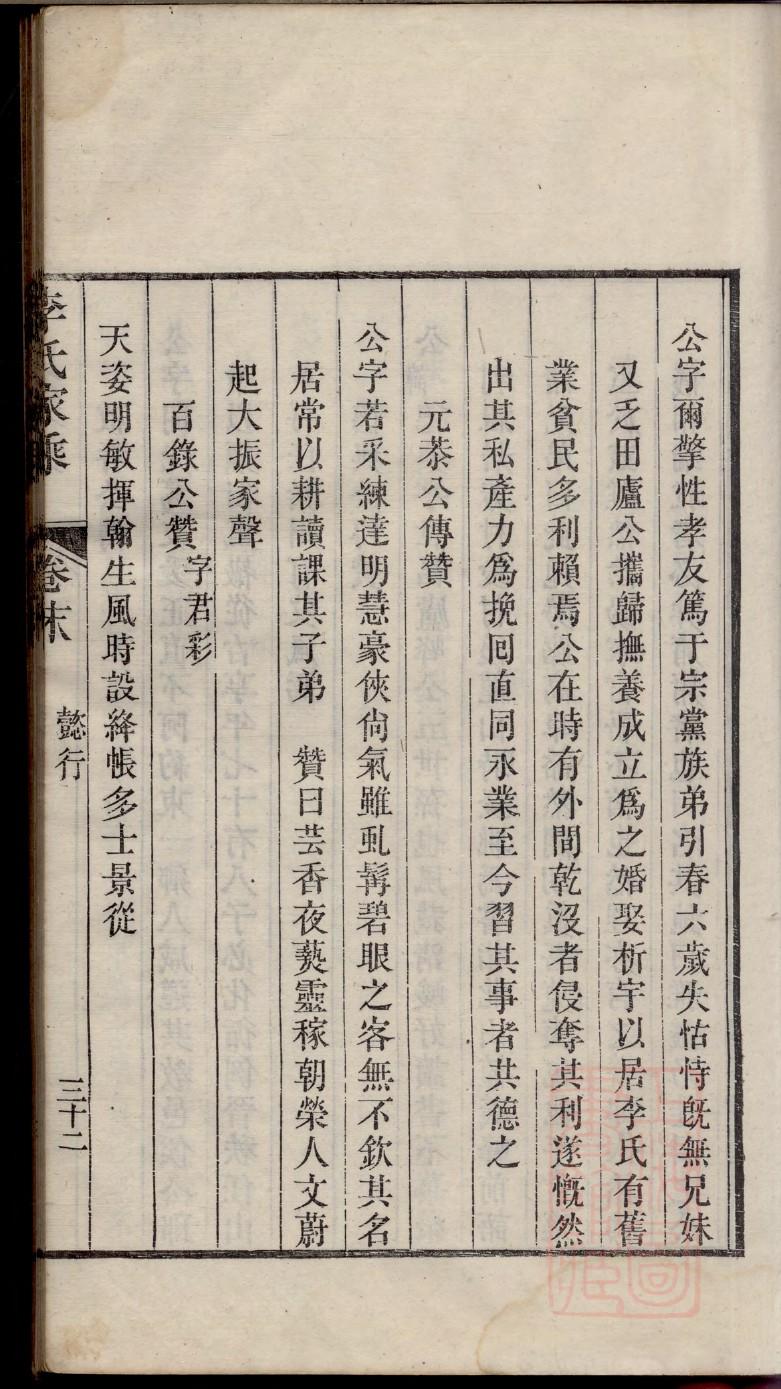 公字爾擎性孝友篤于宗黨族弟引春六歲失怙恃旣無兄妹
又乏田廬公攜歸撫養成立爲之婚娶析宇以居李氏有舊
業貧民多利賴焉公在時有外間乾沒者侵奪其利遂慨然
出其私產力爲挽囘直同永業至今習其事者共德之
元恭公傳贊
公字若采練達明慧豪俠尙氣雖虬髯碧眼之客無不欽其名
居常以耕讀課其子弟　贊曰芸香夜爇靈稼朝榮人文蔚
起大振家聲
百錄公贊字君彩
天姿明敏揮翰生風時設絳帳多士景從
李氏家乘　卷末　懿行　三十二